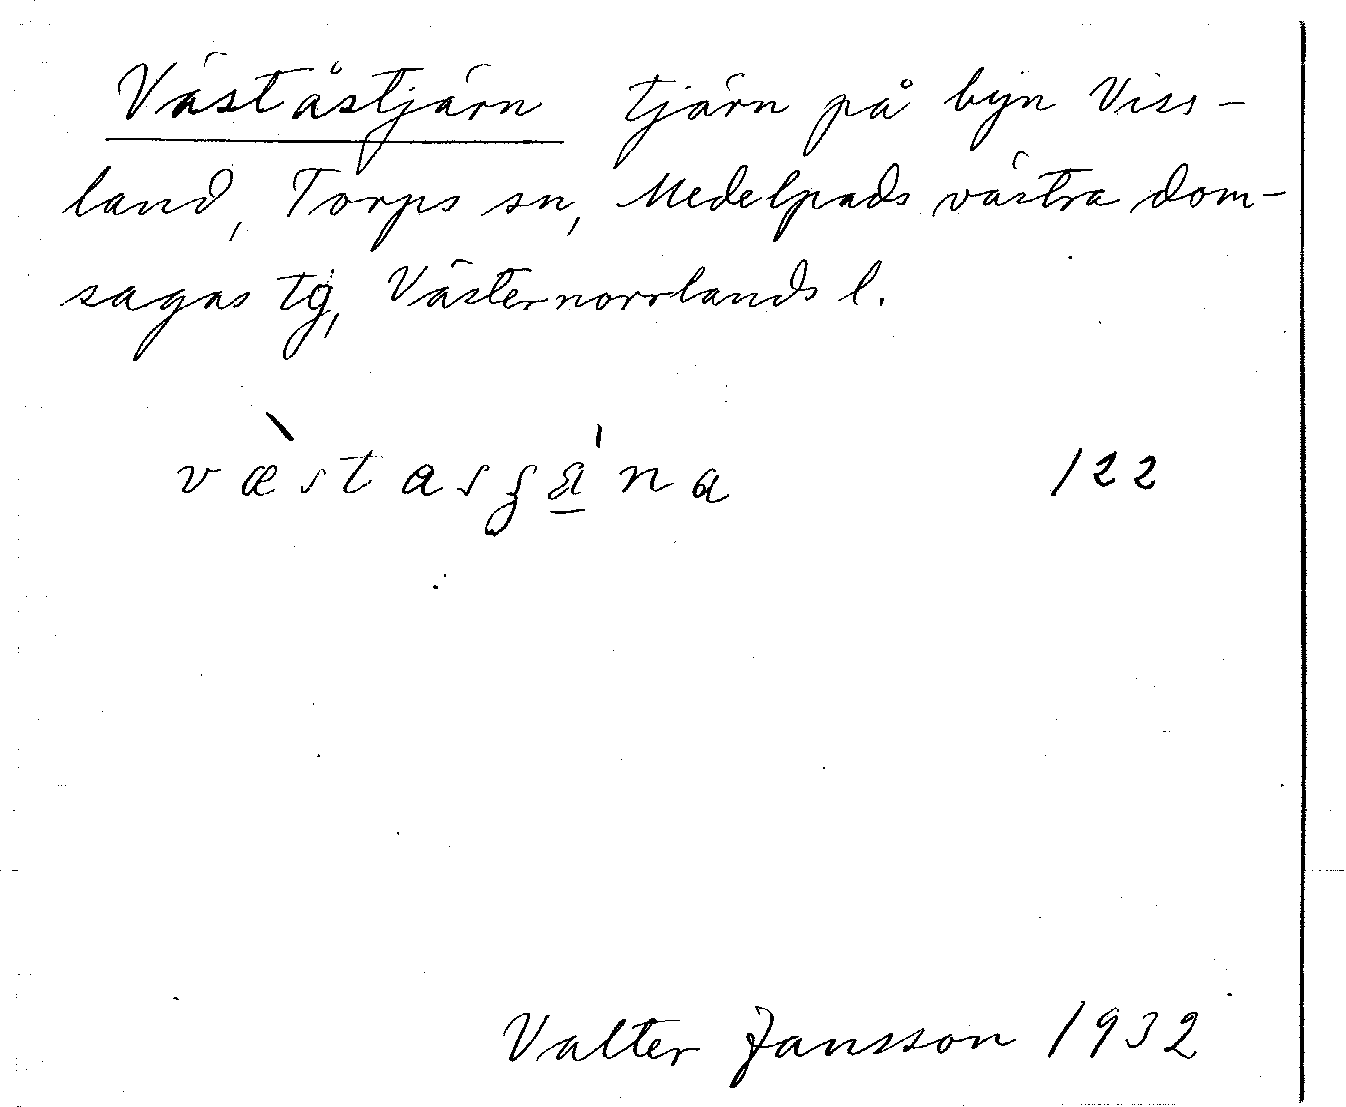 Väståstjärn tjärn på byn Viss-
land, Torps sn, Medelpads västra dom-
sagas tg, Västernorrlands l.
væ̀stasʂæ̲̍na 122
Valter Jansson 1932